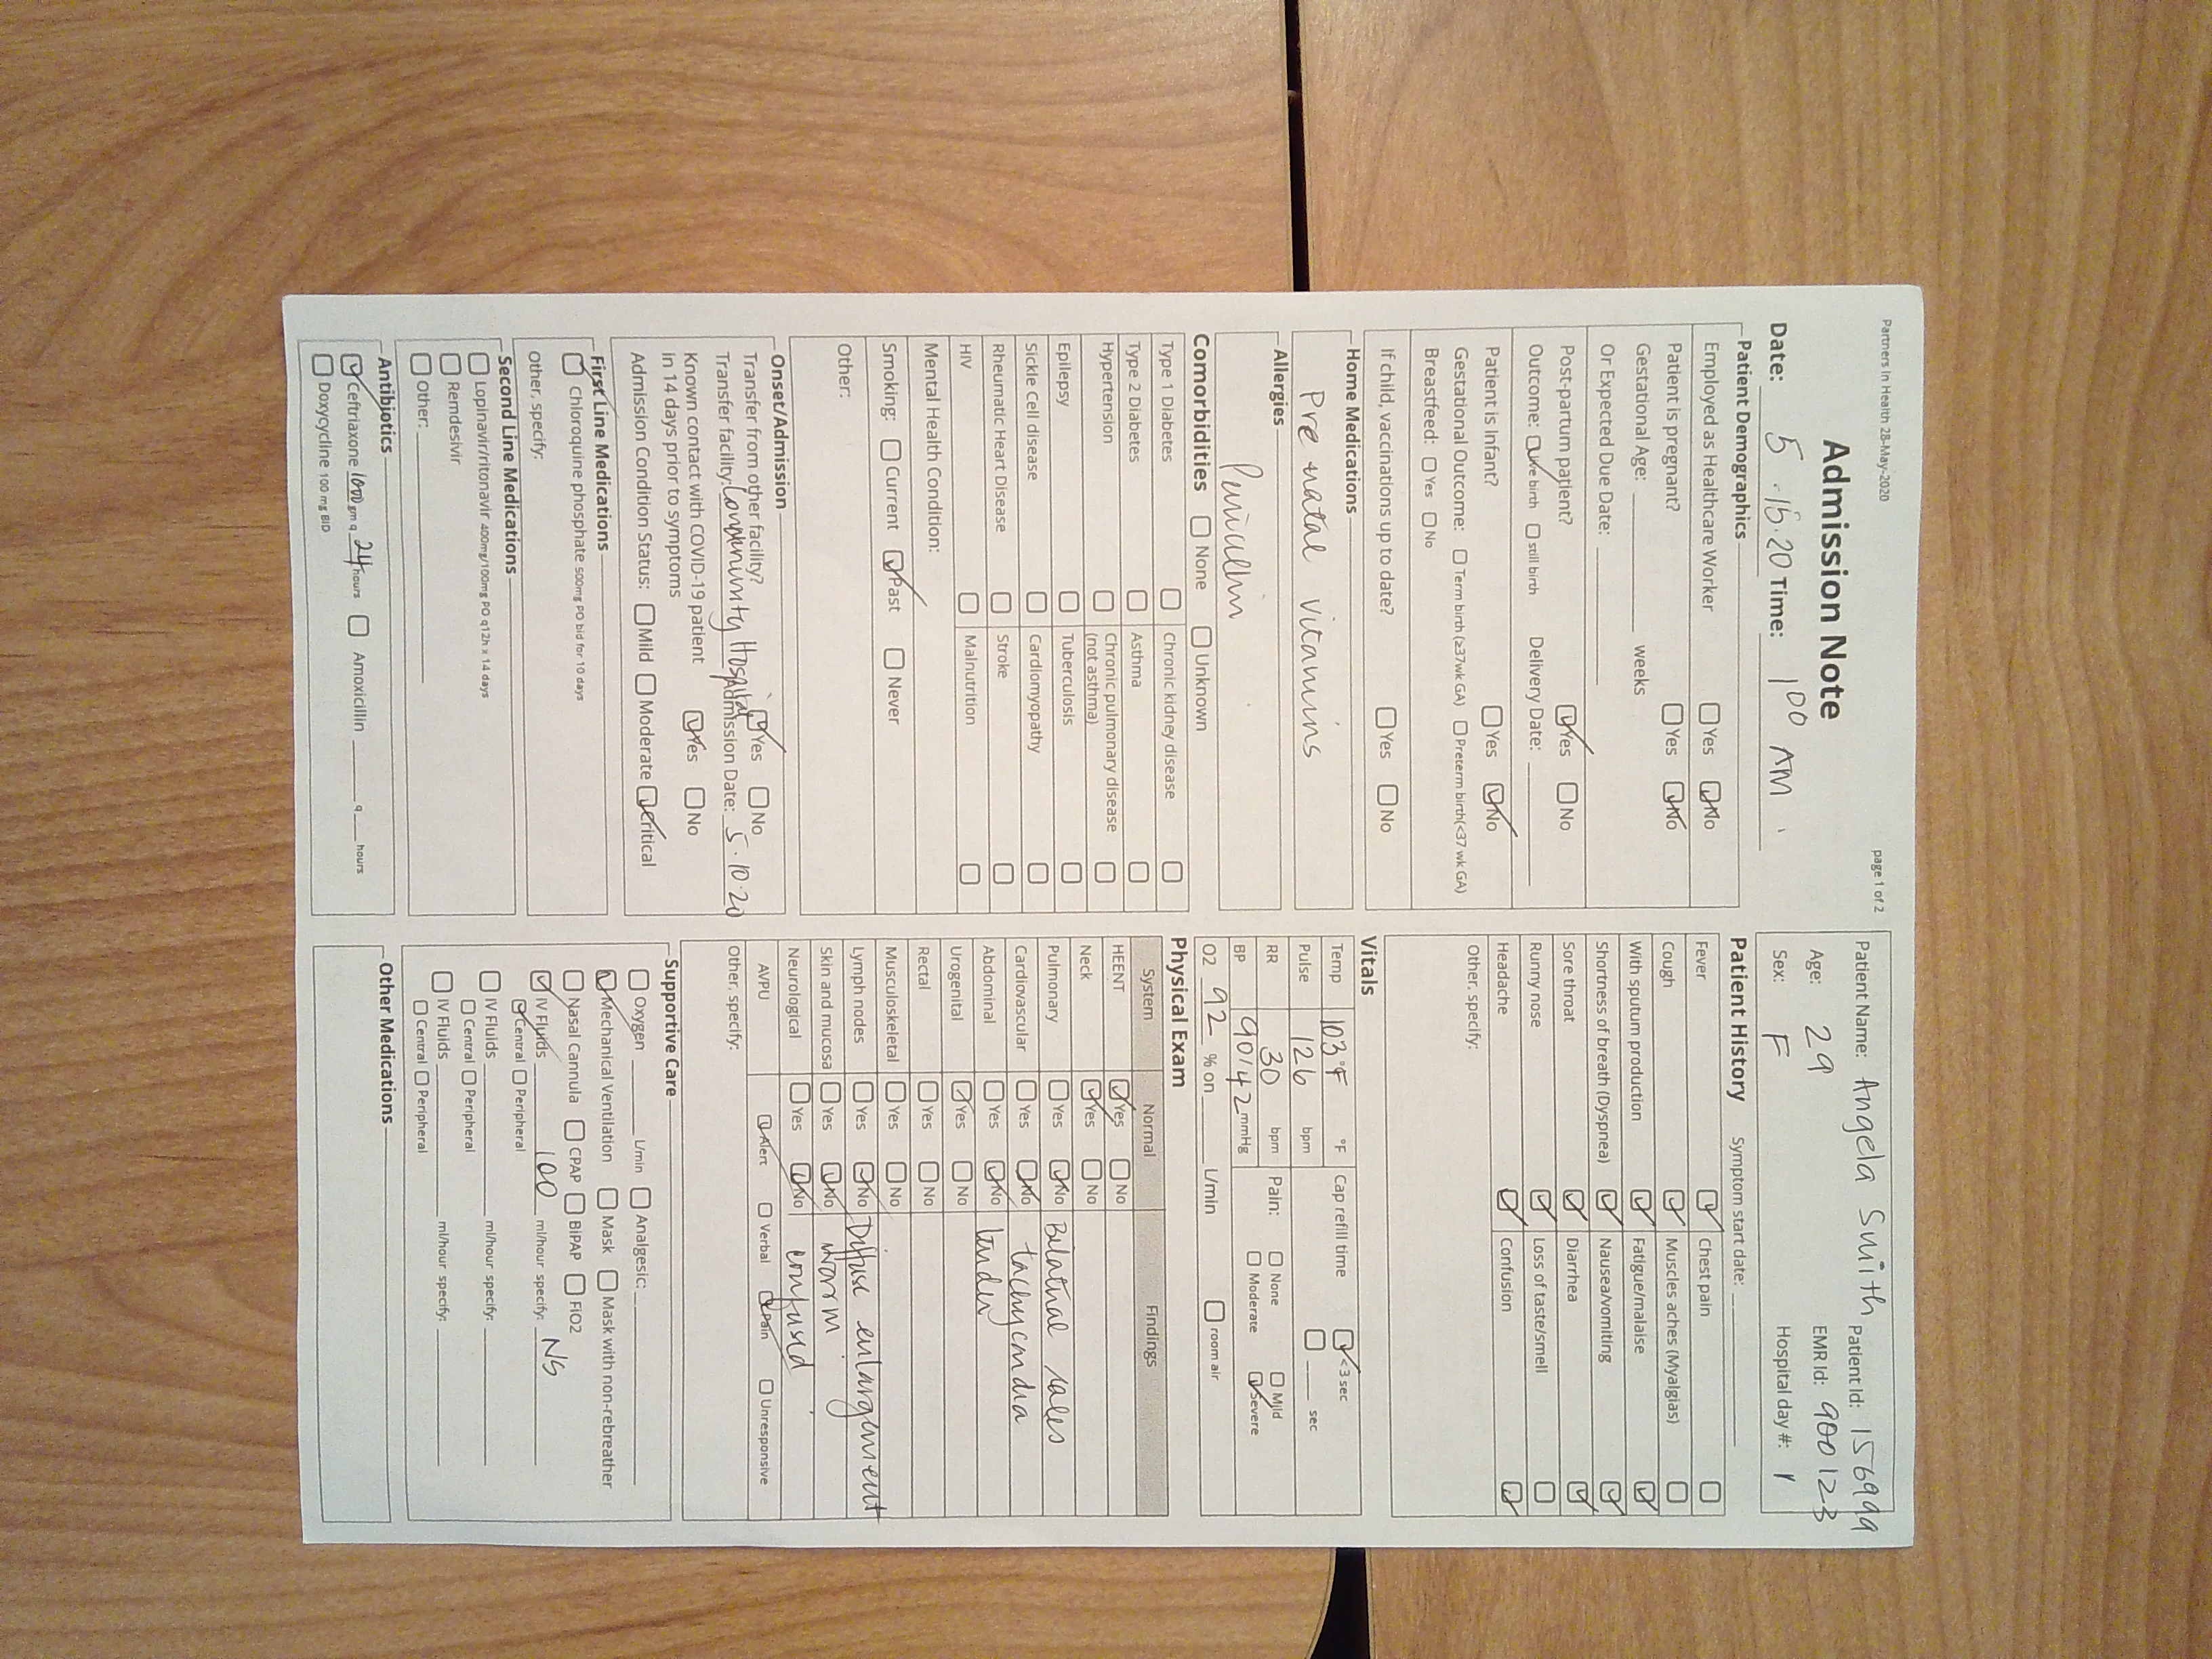 Partners In Health 28-May-2020
page 1 of 2
Admission Note
Date: 5.16.20 Time: 1 00 AM
Patient Name: Angela Smith Patient Id: 156999
Age: 29 EMR Id: 900123
Sex: F Hospital day #: 1
Patient Demographics
Employed as Healthcare Worker Yes No
Patient is pregnant? Yes No
Gestational Age: weeks
Or Expected Due Date:
Post-partum patient? Yes No
Outcome: Live birth still birth Delivery Date:
Patient is Infant? Yes No
Gestational Outcome: Term birth (≥37wk GA) Preterm birth(<37 wk GA)
Breastfeed: Yes No
If child, vaccinations up to date? Yes No
Home Medications
Pre natal Vitamins
Allergies
Penicillin
Comorbidities None Unknown
Type 1 Diabetes Chronic kidney disease
Type 2 Diabetes Asthma
Hypertension Chronic pulmonary disease
(not asthma)
Epilepsy Tuberculosis
Sickle Cell disease Cardiomyopathy
Rheumatic Heart Disease Stroke
HIV Malnutrition
Mental Health Condition:
Smoking: Current Past Never
Other:
Onset/Admission
Transfer from other facility? Yes No
Transfer facility: Community Hospital Admission Date: 5.10.20
Known contact with COVID-19 patient
in 14 days prior to symptoms Yes No
Admission Condition Status: Mild Moderate Critical
First Line Medications
Chloroquine phosphate 500mg PO bid for 10 days
Other, specify:
Second Line Medications
Lopinavir/ritonavir 400mg/100mg PO q12h x 14 days
Remdesivir
Other:
Antibiotics
Ceftriaxone 1000 gm q 24 hours Amoxicillin q hours
Doxycycline 100 mg BID
Patient History Symptom start date:
Fever Chest pain
Cough Muscles aches (Myalgias)
With sputum production Fatigue/malaise
Shortness of breath (Dyspnea) Nausea/vomiting
Sore throat Diarrhea
Runny nose Loss of taste/smell
Headache Confusion
Other, specify:
Vitals
Temp 103°F °F Cap refill time <3 sec
Pulse 126 bpm sec
RR 30 bpm Pain: None Mild
BP 90/42 mmHg Moderate Severe
O2 92 % on L/min room air
Physical Exam
System Normal Findings
HEENT Yes No
Neck Yes No
Pulmonary Yes No Bilateral rales
Cardiovascular Yes No tachycardia
Abdominal Yes No tender
Urogenital Yes No
Rectal Yes No
Musculoskeletal Yes No
Lymph nodes Yes No Diffuse enlargement
Skin and mucosa Yes No warm
Neurological Yes No confused
AVPU Alert Verbal Pain Unresponsive
Other, specify:
Supportive Care
Oxygen L/min Analgesic:
Mechanical Ventilation Mask Mask with non-rebreather
Nasal Cannula CPAP BiPAP FiO2
IV Fluids 100 ml/hour specify: NS
Central Peripheral
IV Fluids ml/hour specify:
Central Peripheral
IV Fluids ml/hour specify:
Central Peripheral
Other Medications